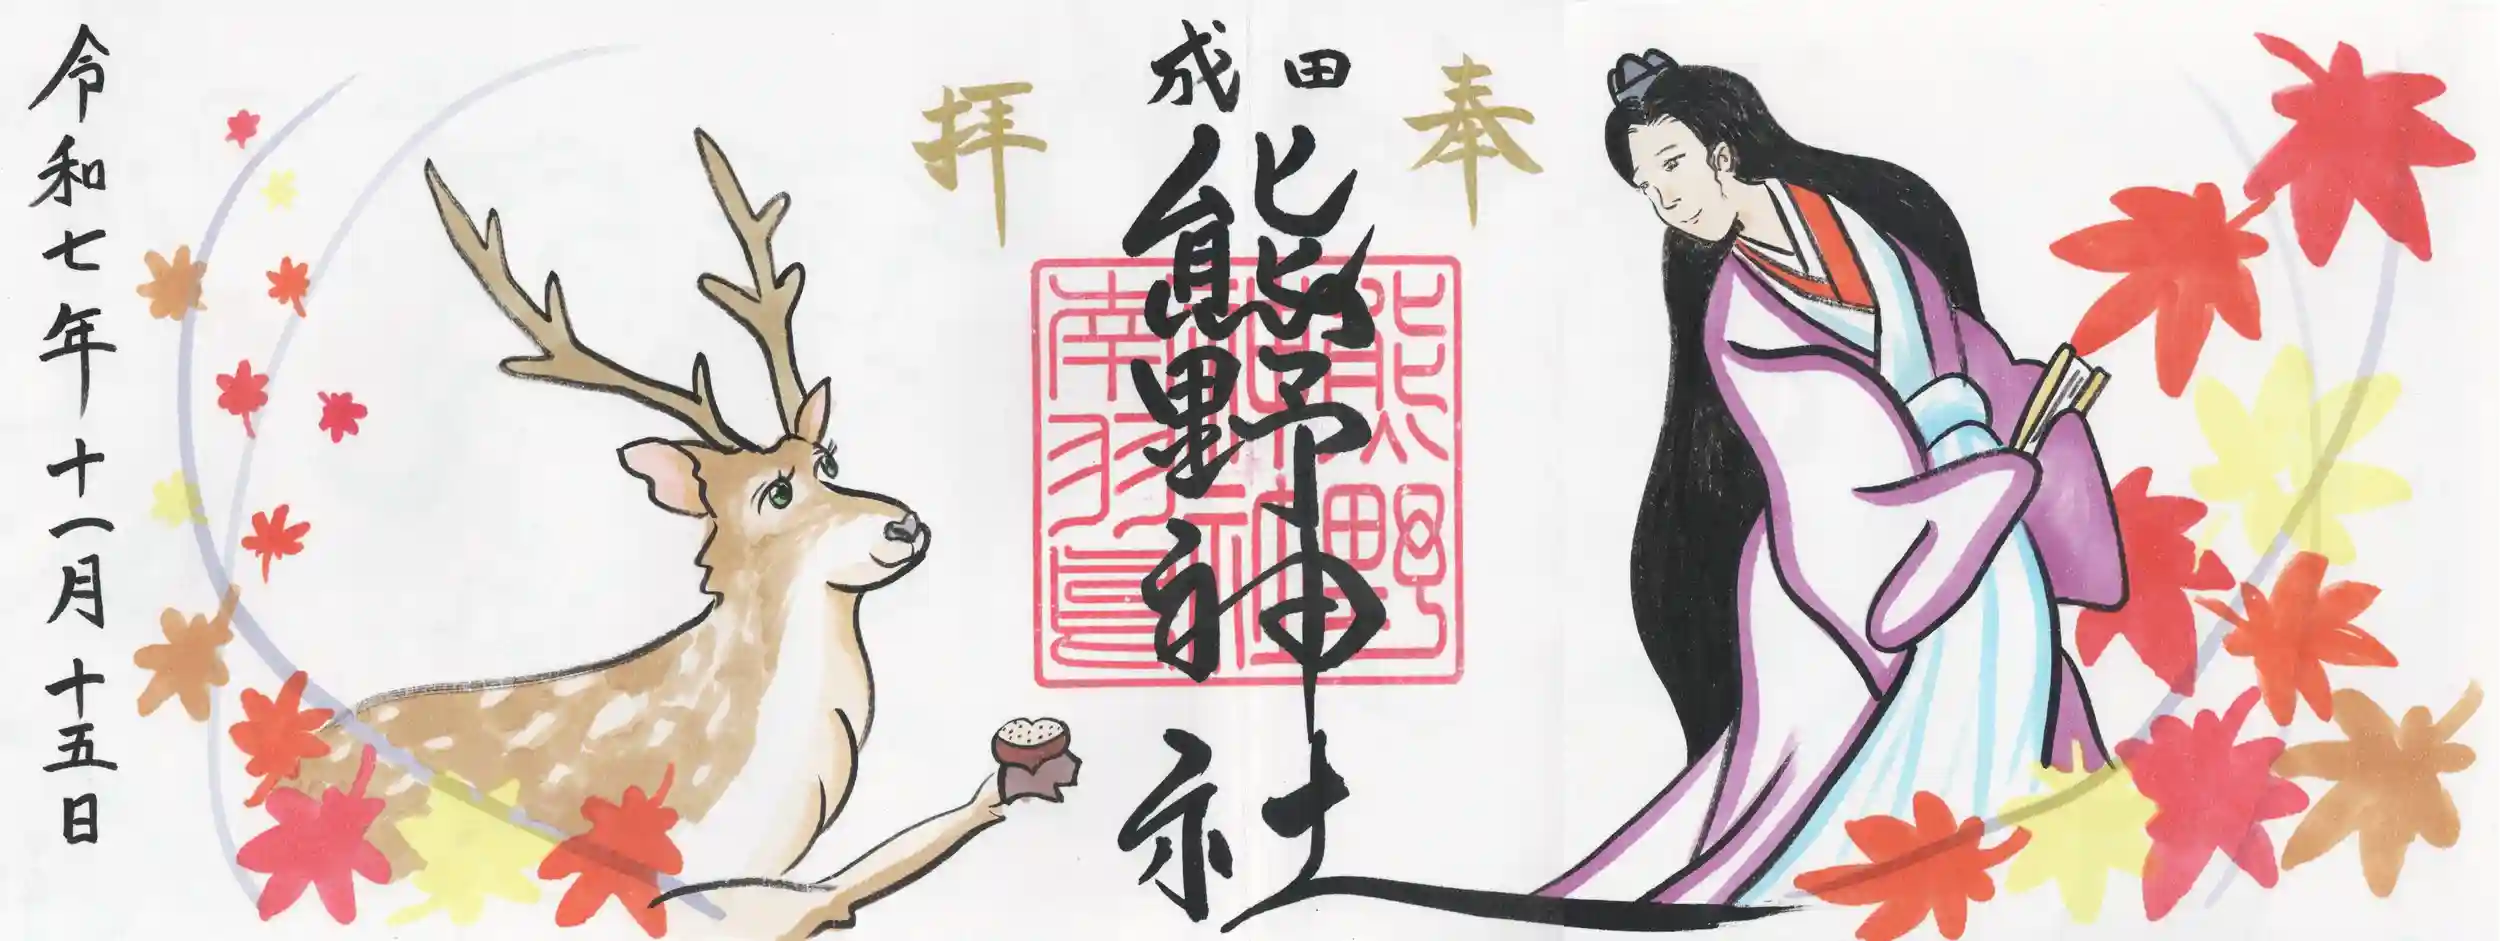 奉拝
成田
熊野神社
熊野
南羽鳥
令和七年十一月十五日